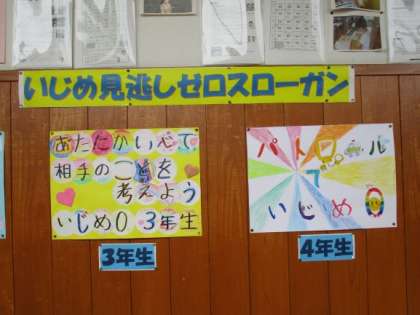 いじめ見逃しゼロスローガン
あたたかい心で
相手のことを
考えよう
いじめ0 3年生
3年生
パトロール
いじめ0
4年生